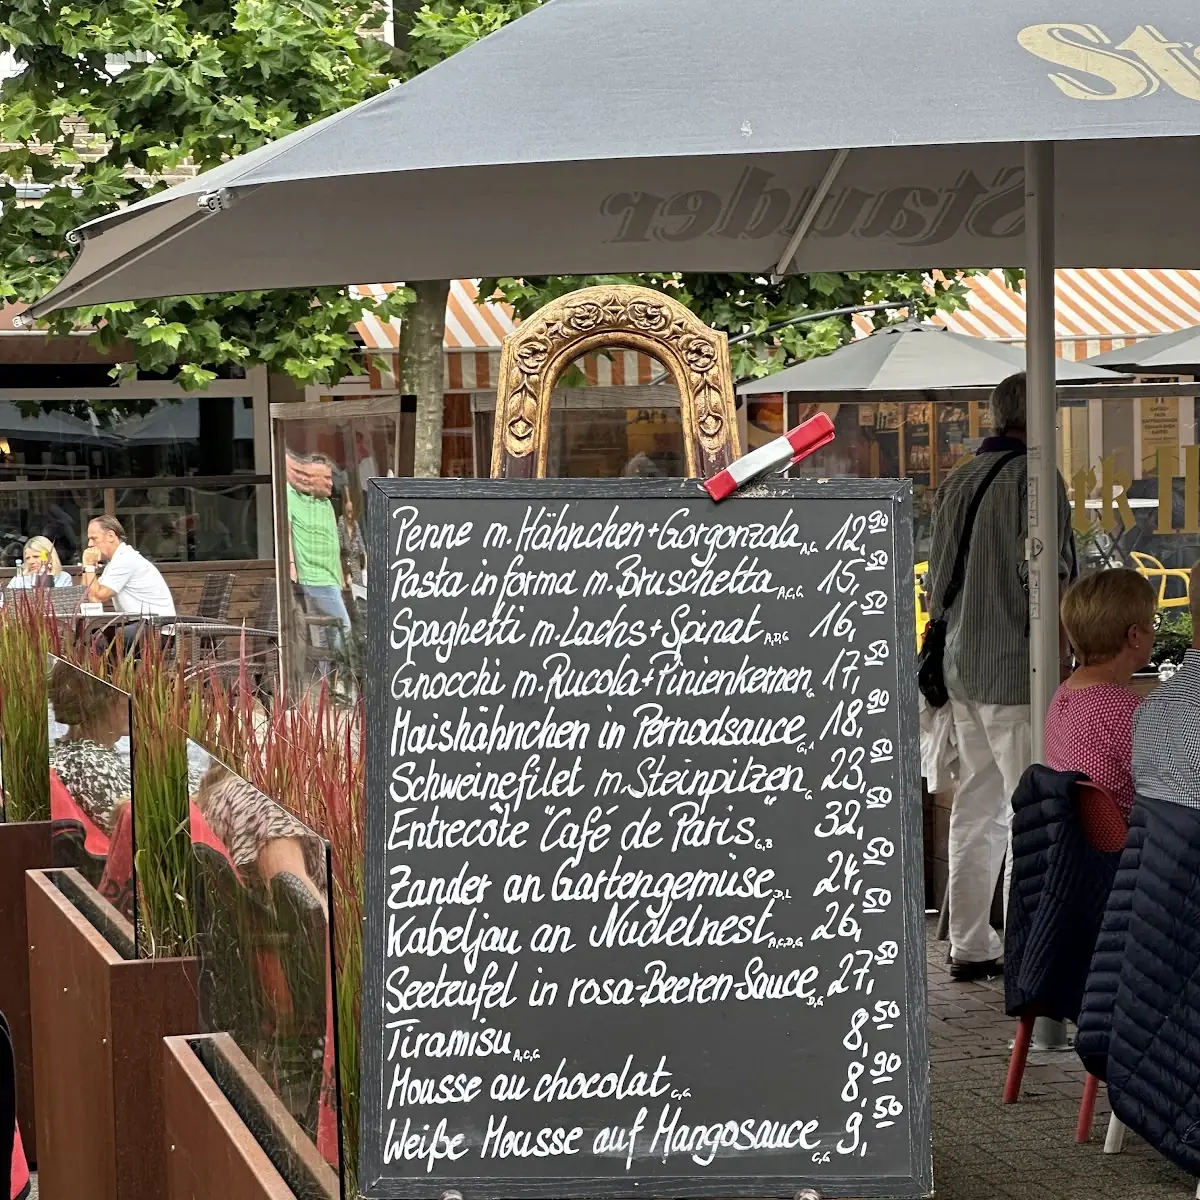 Stauder
Penne m. Hähnchen+Gorgonzola A,G 12,90
Pasta in forma m. Bruschetta A,C,G 15,50
Spaghetti m. Lachs+Spinat A,D,G 16,50
Gnocchi m. Rucola+Pinienkernen G 17,50
Maishähnchen in Pernodsauce G,1 18,90
Schweinefilet m. Steinpilzen G 23,50
Entrecôte "Café de Paris" G,B 32,50
Zander an Gartengemüse D,L 24,50
Kabeljau an Nudelnest A,C,D,G 26,50
Seeteufel in rosa-Beeren-Sauce D,G 27,50
Tiramisu A,C,G 8,50
Mousse au chocolat C,G 8,90
Weiße Mousse auf Mangosauce C,G 9,50